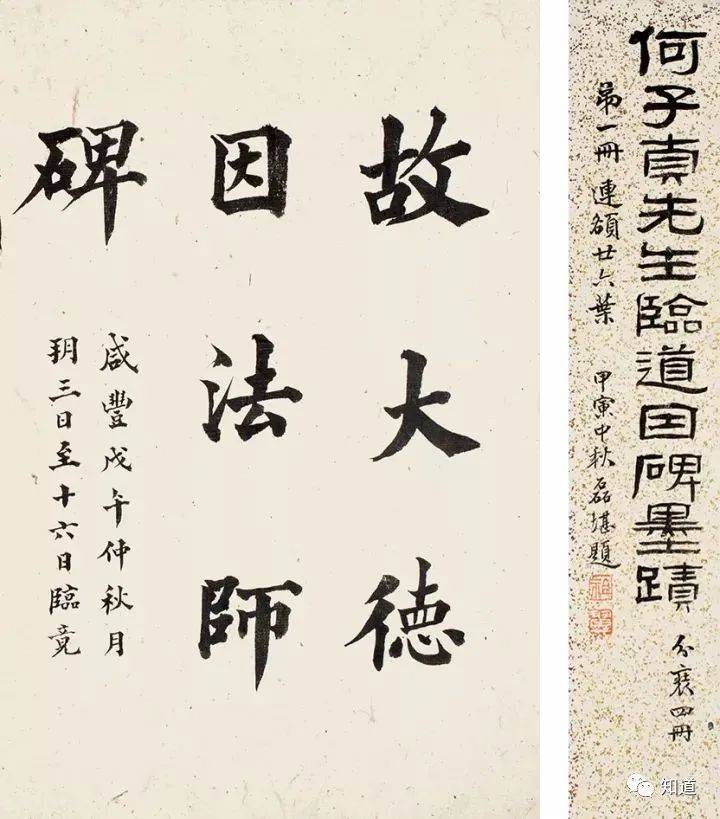 何子貞先生臨道因碑墨蹟 分裝四冊
第一冊 連額廿六葉 甲寅中秋磊堪題
故大德
因法師
碑
咸豐戊午仲秋月
玥三日至十六日臨竟
知道